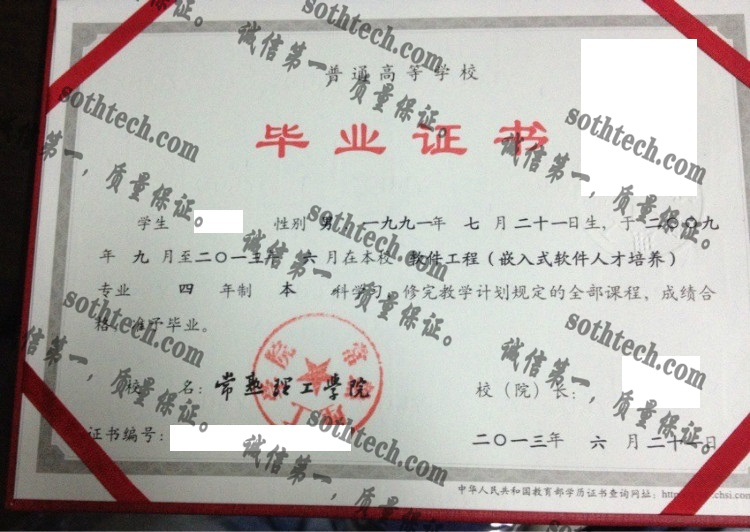 普通高等学校
毕业证书
学生 性别 男，一九九一年 七 月 二十一日生，于二〇〇九
年 九 月至二〇一三年 六 月在本校 软件工程（嵌入式软件人才培养）
专业 四 年制 本 科学习，修完教学计划规定的全部课程，成绩合
格，准予毕业。
校 名：常熟理工学院
校（院）长：
证书编号：
二〇一三年 六 月二十 日
中华人民共和国教育部学历证书查询网址：http
chsi.com
sothtech.com
诚信第一，质量保证。
sothtech.com
诚信第一，质量保证。
sothtech.com
诚信第一，质量保证。
sothtech.com
诚信第一，质量保证。
sothtech.com
诚信第一，质量保证。
sothtech.com
诚信第一，质量保证。
sothtech.com
诚信第一，质量保证。